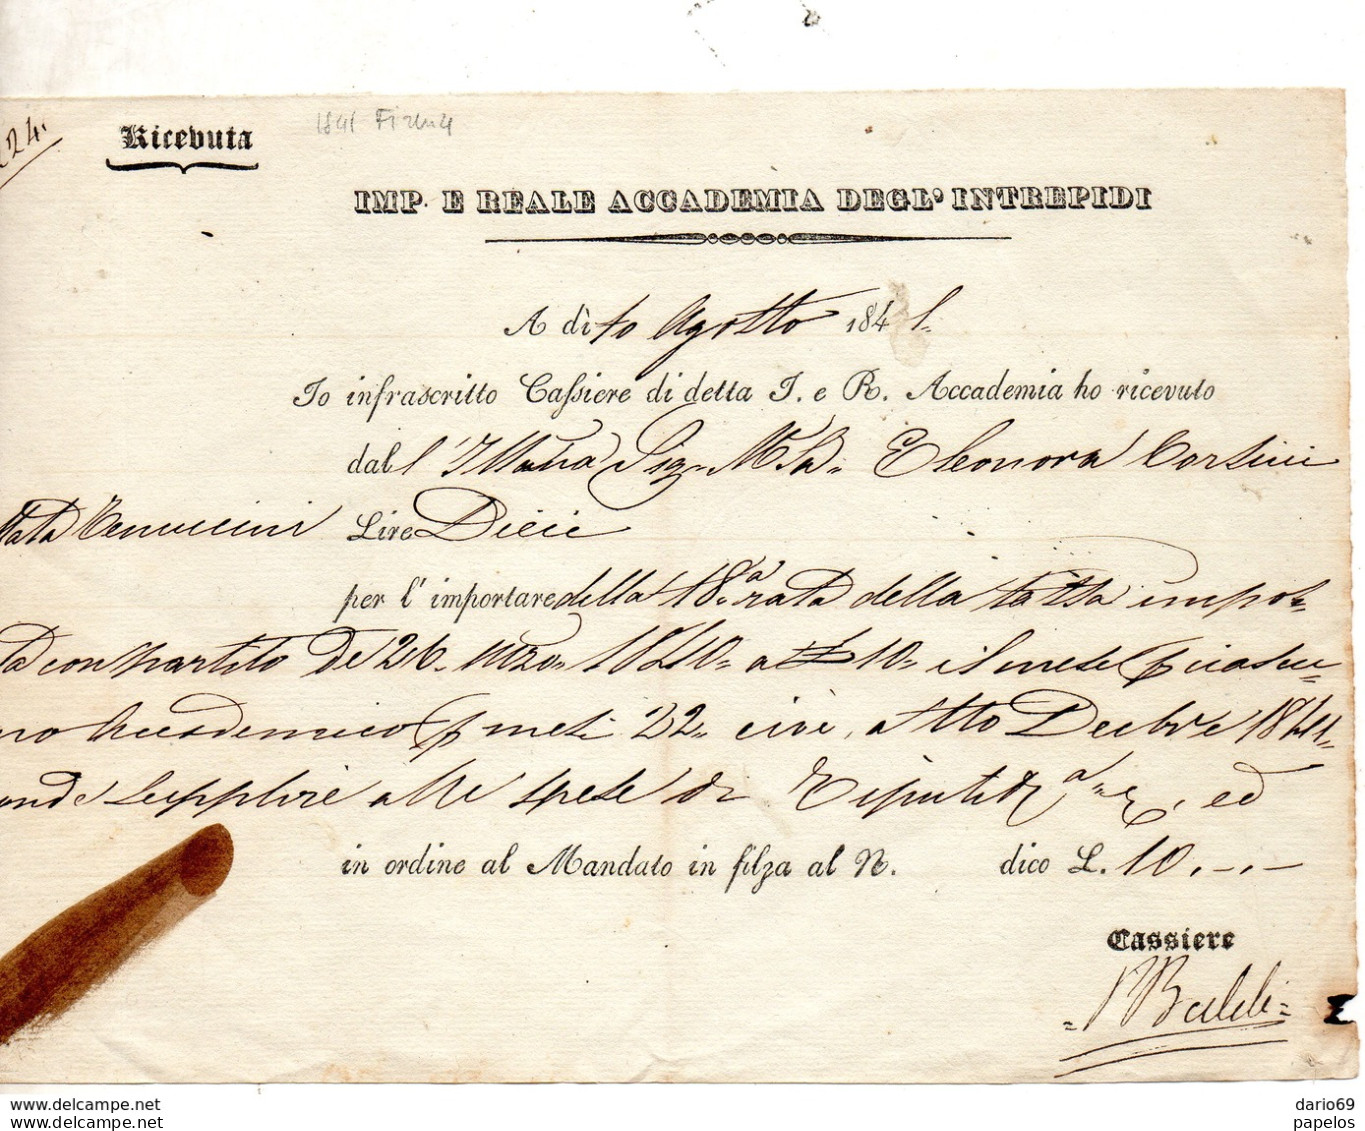 224
Ricevuta
1841 Firenze
IMP. E REALE ACCADEMIA DEGL' INTREPIDI
A dì 10 Agosto 1841.
Io infrascritto Cassiere di detta I. e R. Accademia ho ricevuto
dall' Illma Sig. Eleonora Corsini
Rinuccini Lire Dieci
per l' importare della 18.a rata della tassa impo
ta con Partito de 26. 1840. a £ 10. il mese p ciascu
no Accademico p mesi 22. cioè, a tto Decbre 1841.
onde supplire alle spese di , ed
in ordine al Mandato in filza al N. dico L. 10.-.-
Cassiere
Baldi
www.delcampe.net
www.delcampe.net
dario69
papelos